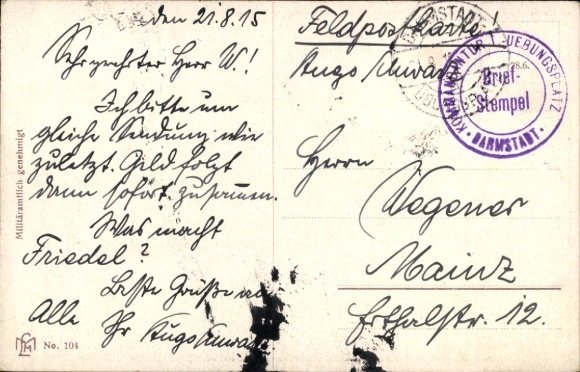 den 21.8.15
Sehr geehrter Herr W!
Ich bitte um
gleiche Sendung wie
zuletzt. Geld folgt
dann sofort zusammen.
Was macht
Friedel?
Beste Grüße an
Alle Ihr Hugo
Militäramtlich genehmigt
No. 104
Feldpostkarte!
Hugo
KOMMANDANTUR UEBUNGSPLATZ
Brief-
Stempel
DARMSTADT.
Herrn
Wegener
Mainz
Erthalstr. 12.